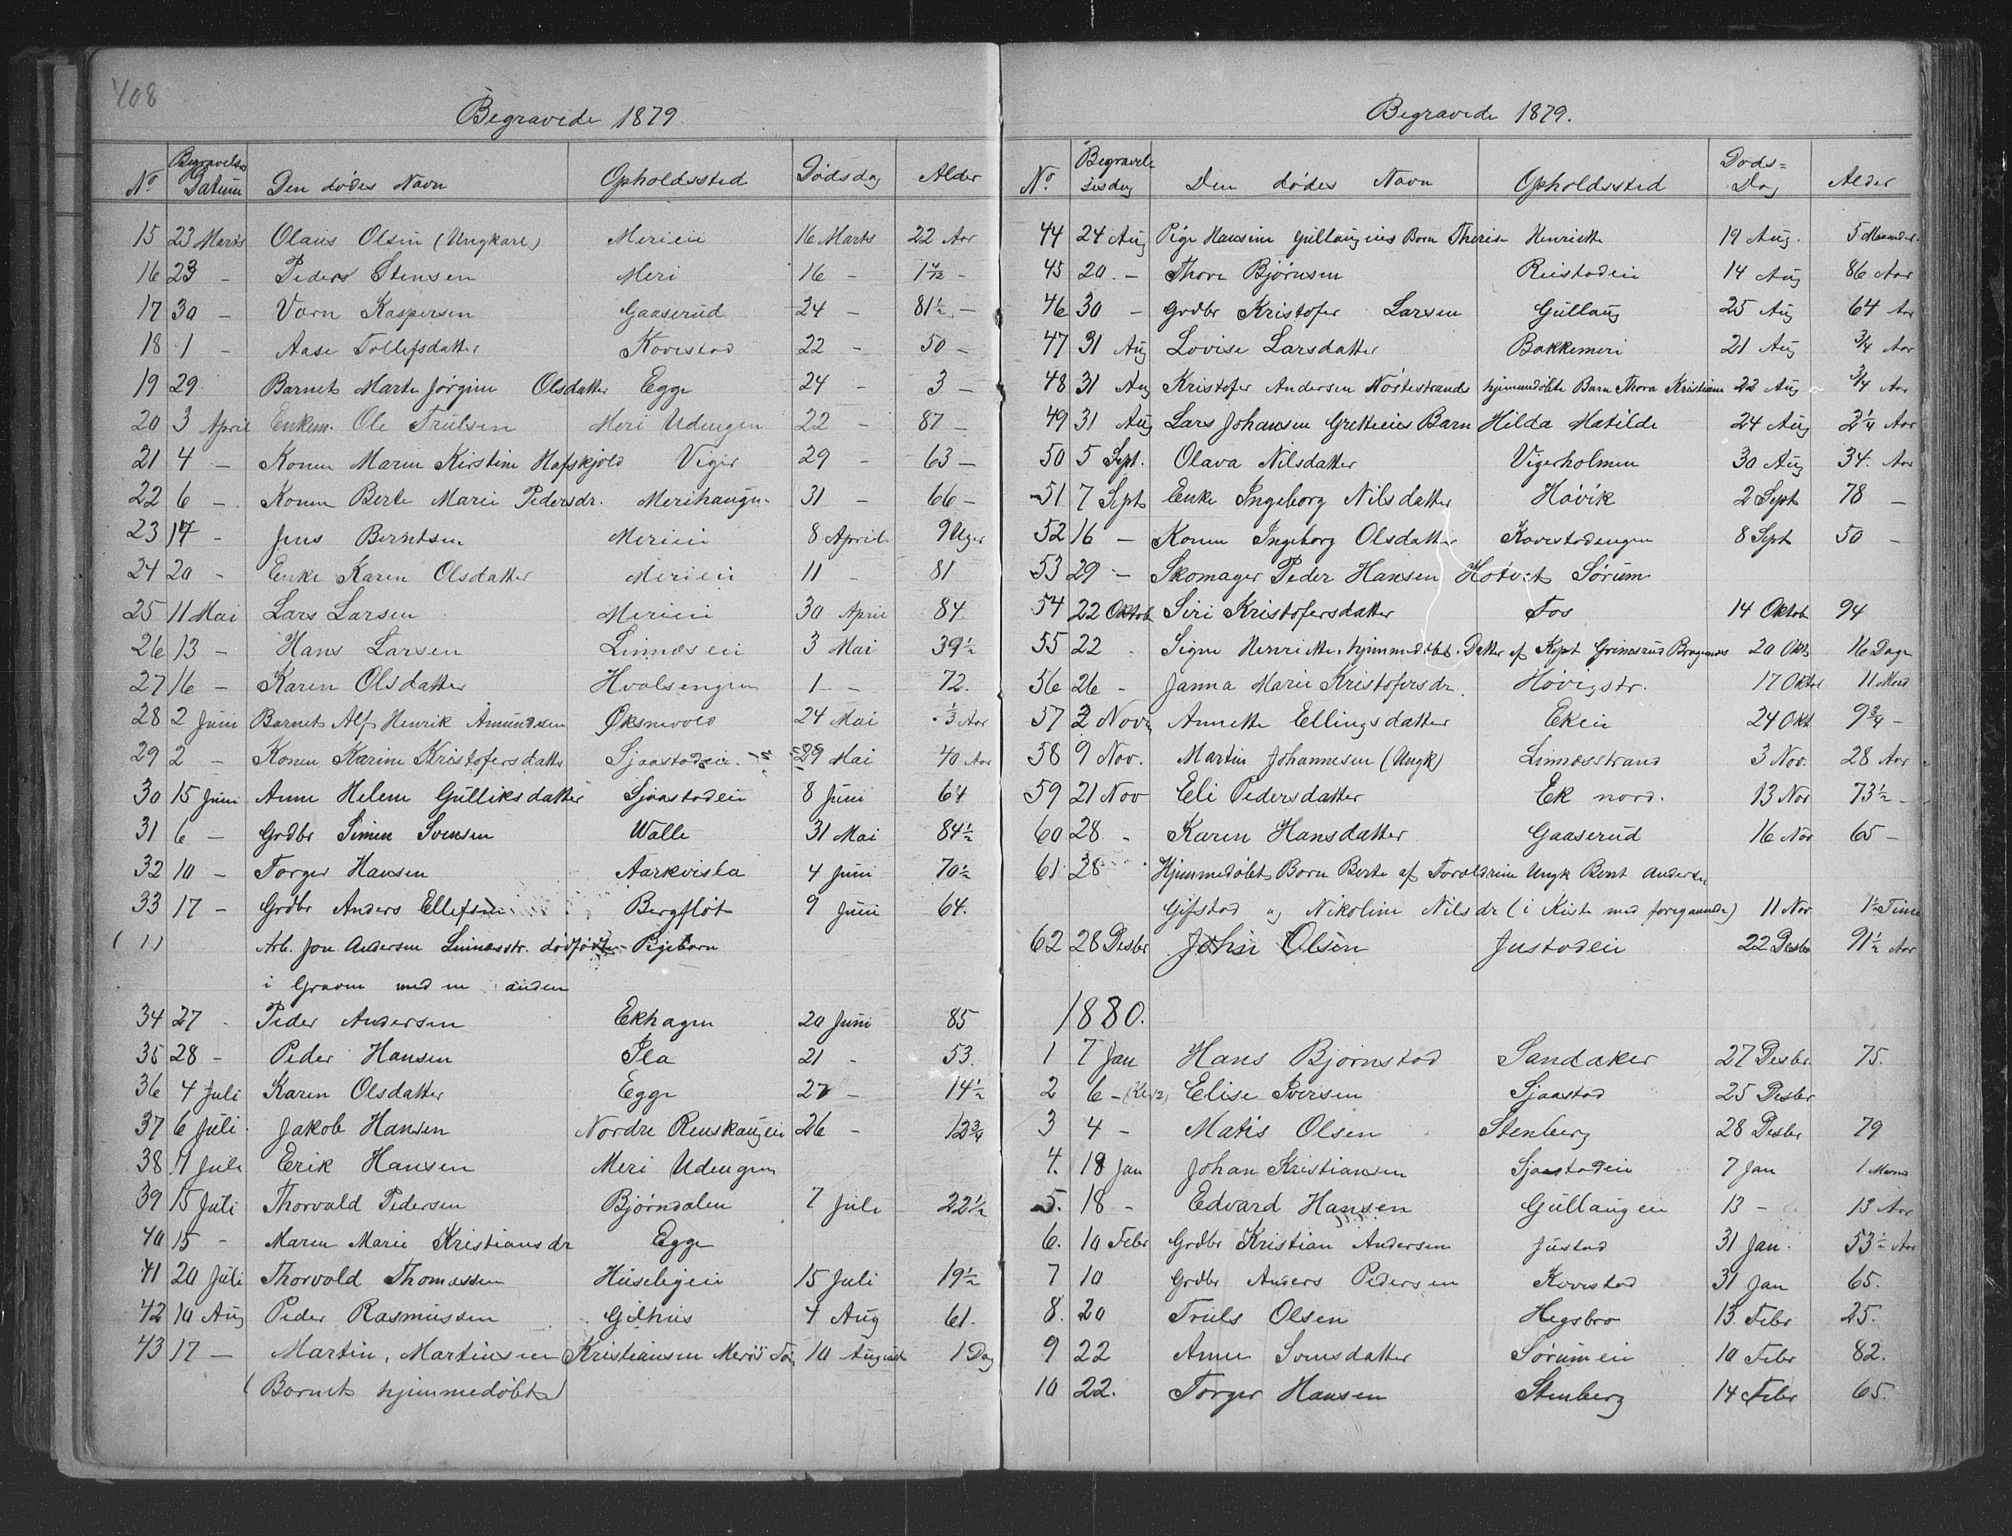 408
Begravede 1879.
No Begravelses Datum Den dødes Navn Opholdssted Dødsdag Alder
15 23 Marts Olaus Olsen (Ungkarl) Merieie 16 Marts 22 Aar
16 23 - Peder Stensen Meri 16 - 1 -
17 30 - Vorn Kaspersen Gaaserud 24 - 81½ -
18 1 - Aase Tollefsdatter Kovestad 22 - 50 -
19 29 Barnet Marte Jørgine Olsdatter Egge 24 - 3 -
20 3 April Enkem. Ole Trulsen Meri Udengen 22 - 87 -
21 4 - Konen Maren Kirstine Hafskjold Viger 29 - 63 -
22 6 - Konen Berte Marie Pedersdr. Merihaugen 31 - 66 -
23 17 - Jens Berntsen Merieie 8 April 9 Uger
24 20 - Enke Karen Olsdatter Merieie 11 - 81
25 11 Mai Lars Larsen Merieie 30 April 84.
26 13 - Hans Larsen Linnæseie 3 Mai 39½
27 16 - Karen Olsdatter Hvalsengen 1 - 72.
28 2 Juni Barnet Alf Henrik Amundsen Øksnevold 24 Mai ⅓ Aar
29 2 - Konen Karine Kristofersdatter Sjaastadeie 29 Mai 40 Aar
30 15 Juni Anne Helene Gulliksdatter Sjaastadeie 8 Juni 64
31 6 - Grdbr Simen Svensen Walle 31 Mai 84½
32 10 - Torger Hansen Aarkvisla 4 Juni 70½
33 17 - Grdbr Anders Ellefsen Bergfløt 9 Juni 64.
(1) Arb. Jon Andersen Linnæsstr. dødfødte Pigebarn
i Graven med en anden
34 27 - Peder Andersen Ekhagen 20 Juni 85
35 28 - Peder Hansen Ila 21 - 53.
36 4 Juli Karen Olsdatter Egge 27 - 14½
37 6 Juli Jakob Hansen Nordre Renskaugeie 26 - 12¾
38 7 Juli Erik Hansen Meri Udengen
39 15 Juli Thorvald Pedersen Bjørndalen 7 Juli 22½
40 15 - Maren Marie Kristiansdr Egge
41 20 Juli Thorvald Thomassen Husebyeie 15 Juli 19½
42 10 Aug Peder Rasmussen Gilhus 4 Aug 61.
43 17 - Martin, Martinsen Kristiansen Merie 10 August 1 Dag
(Barnet hjemmedøbt)
Begravede 1879.
No. Begravelsesdag Den dødes Navn Opholdssted Døds=Dag Alder
44 24 Aug Pige Hansine Gullaugeies Barn Therese Henriette 19 Aug. 5 Maaneder
45 20. - Thore Bjørnsen Reistadeie 14 Aug 86 Aar
46 30 - Grdbr Kristofer Larsen Gullaug 25 Aug 64 Aar
47 31 Aug Lovise Larsdatter Bakkemeri 21 Aug ¾ Aar
48 31 Aug Kristofer Andersen Nøstestrandes hjemmedøbte Barn Thora Kristiane 22 Aug ¾ Aar
49 31 Aug Lars Johansen Gretteeies Barn Hilda Matilde 24 Aug 2¼ Aar
50 5 Sept. Olava Nilsdatter Vigerholmen 30 Aug 34. Aar
51 7 Sept Enke Ingeborg Nilsdatter Høvik 2 Sept 78 -
52 16 - Konen Ingeborg Olsdatter Kovestadengen 8 Sept 50 -
53 29 - Skomager Peder Hansen Hotvet Sørum
54 22 Oktob Siri Kristofersdatter Fos 14 Oktob 94
55 22 - Signe Henriette, hjemmedøbt. Datter af Kapt Grimsrud Bragernes 20 Okt 16 Dage
56 26 - Janna Marie Kristofersdr. Høvigstr. 17 Oktor 11 Mnd
57 2 Novr Annette Ellingsdatter Ekeie 24 Okt 9¾ -
58 9 Nov. Martin Johannesen (Ungk) Linnæsstrand 3 Nov. 28 Aar
59 21 Nov Eli Pedersdatter Ek nord. 13 Nov 73½ -
60 28 - Karen Hansdatter Gaaserud 16 Nov 65 -
61 28 Hjemmedøbt Barn Berte af Forældrene Ungk Bent Andersen
Gifstad og Nikoline Nilsdr (i Kiste med foregaaende) 11 Nov 1½ Time
62 28 Desbr Johs Olsen Justadeie 22 Desbr 91½ Aar
1880.
1 7 Jan Hans Bjørnstad Sandaker 27 Desbr 75.
2 6 - Elise Iversen Sjaastad 25 Desbr
3 4 - Matis Olsen Stenberg 28 Desbr 79
4. 18 Jan Johan Kristiansen Sjaastadeie 7 Jan 1 Mnd
5. 18 - Edvard Hansen Gullaugeie 13 - 13 Aar
6. 10 Febr Grdbr Kristian Andersen Justad 31 Jan. 53½ Aar
7 10 Grdbr Anders Pedersen Kovestad 31 Jan 65.
8. 20 Truls Olsen Hegsbro 13. Febr 25.
9 22 Anne Svensdatter Sørumeie 10 Febr 82.
10 22. Torger Hansen Stenberg 14 Febr 65.